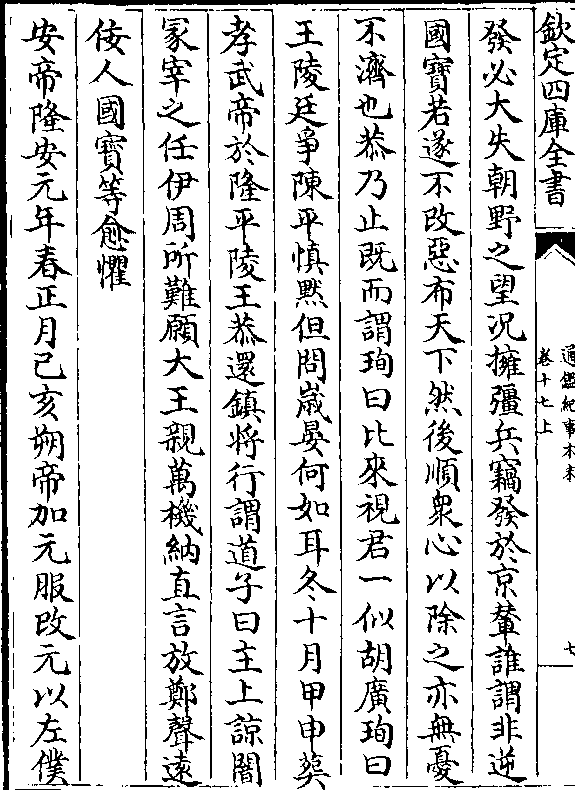 欽定四庫全書
通鑑紀事本末
卷十七上
七
發必大失朝野之望况擁彊兵竊發於京輦誰謂非逆
國寶若遂不改惡布天下然後順衆心以除之亦無憂
不濟也恭乃止既而謂珣曰比來視君一似胡廣珣曰
王陵廷爭陳平慎黙但問嵗晏何如耳冬十月甲申葬
孝武帝於隆平陵王恭還鎮將行謂道子曰主上諒闇
冢宰之任伊周所難願大王親萬機納直言放鄭聲遠
佞人國寶等愈懼
安帝隆安元年春正月己亥朔帝加元服改元以左僕